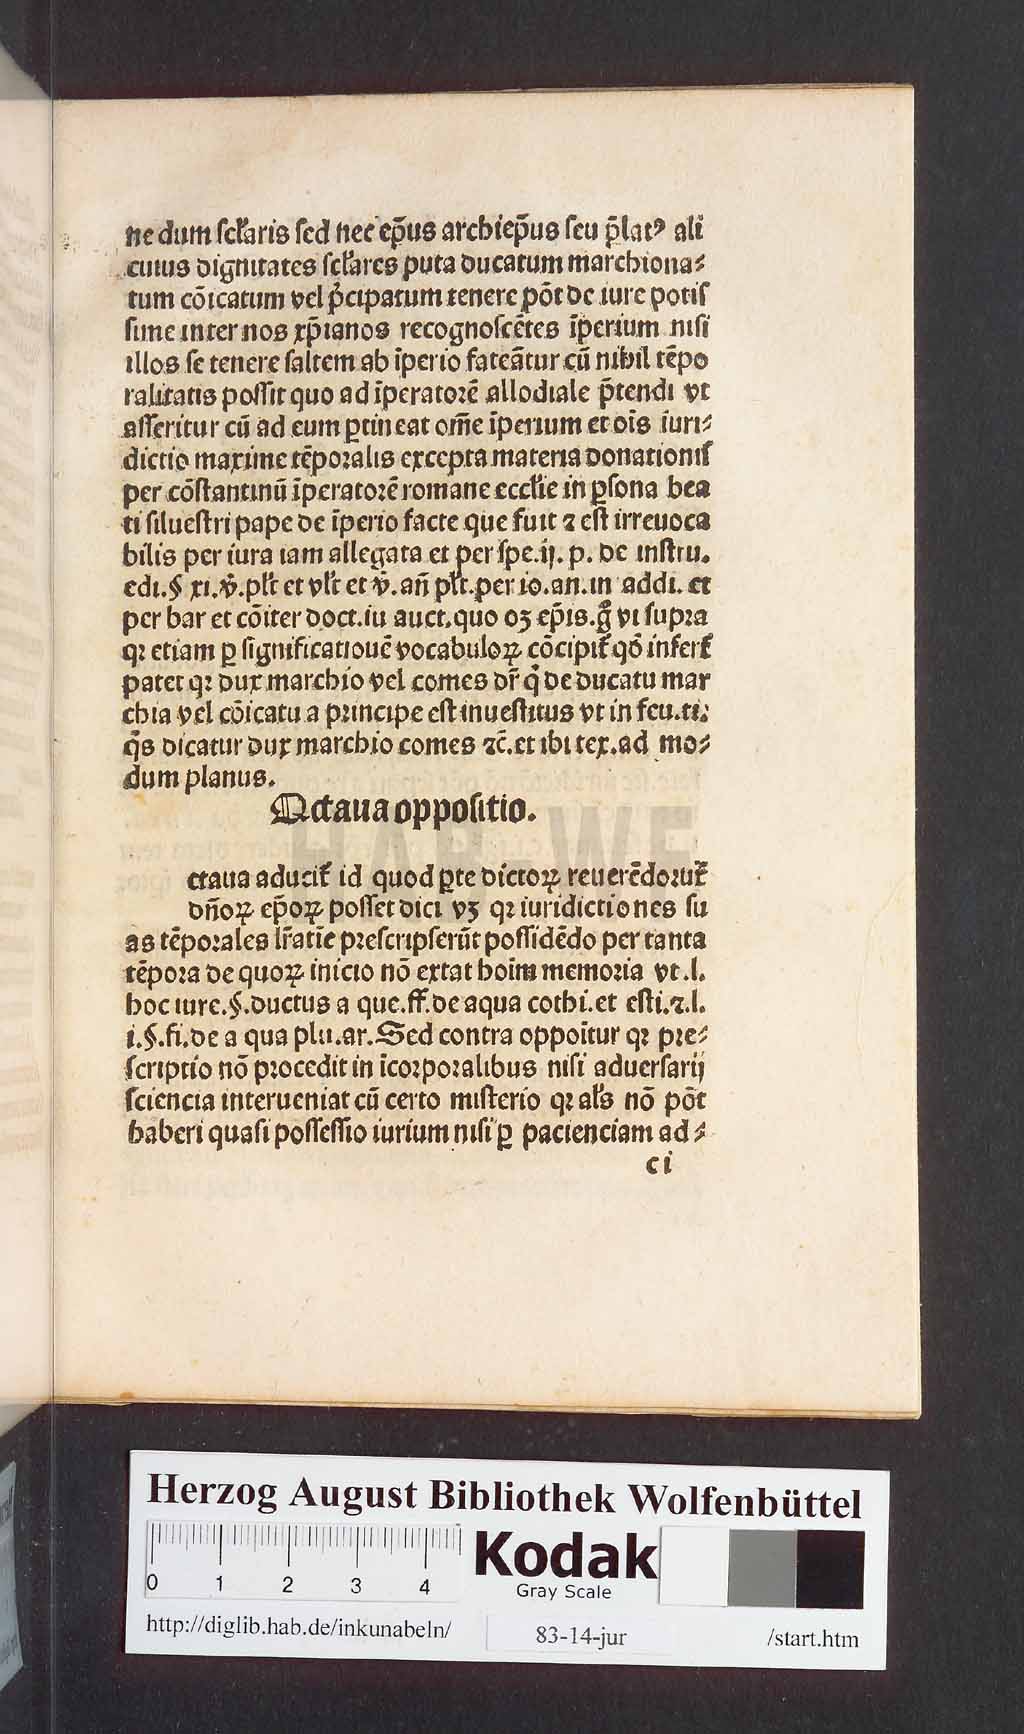 ne dum ſcl̄aris ſed nec ep̄us archiep̄us ſeu p̄latꝰ ali
cuius dignitates ſcl̄ares puta ducatum marchiona⸗
tum cōicatum vel p̓cipatum tenere pōt de iure potiſ
ſime inter nos xp̄ianos recognoſcētes īperium niſi
illos ſe tenere ſaltem ab īperio fateātur cū nihil tēpo
ralitatis poſſit quo ad īperatorē allodiale p̄tendi vt
aſſeritur cū ad eum ꝑtineat om̄e īperium et oīs iuri⸗
dictio maxime tēporalis excepta materia donationiſ
per cōſtantinū īperatorē romane eccl̄ie in ꝑſona bea
ti ſilueſtri pape de īperio facte que fuit ⁊ eſt irreuoca
bilis per iura iam allegata et per ſpe.ij. p. de inſtru.
edi.§ xi.v̓.pl̄t et vl̄t et v̓.an̄ pl̄t.per io.an.in addi. et
per bar et cōiter doct.iu auct.quo oꝫ ep̄is.g̊ vi ſupra
qꝛ etiam ꝑ ſignificatiouē vocabuloꝝ cōcipit̄ qō infert̄
patet qꝛ dux marchio vel comes dr̄ q̓ de ducatu mar
chia vel cōicatu a principe eſt inueſtitus vt in feu.ti.
q̓s dicatur dux marchio comes ⁊c̄.et ibi tex.ad mo⸗
dum planus.
Octaua oppoſitio.
ctaua aducit̄ id quod ꝑte dictoꝝ reuerēdorūt̄
dn̄oꝝ ep̄oꝝ poſſet dici vꝫ qꝛ iuridictiones ſu
as tēporales lr̄atīe preſcripſerūt poſſidēdo per tanta
tēpora de quoꝝ inicio nō extat hoīm memoria vt.l.
hoc iure.§.ductus a que.ff.de aqua cothi.et eſti.⁊.l.
i.§.fi.de a qua plu.ar.Sed contra oppoītur qꝛ pre⸗
ſcriptio nō procedit in īcorporalibus niſi aduerſarij
ſciencia interueniat cū certo miſterio qꝛ al̄s nō pōt
haberi quaſi poſſeſſio iurium niſi ꝑ pacienciam ad⸗
c i
HAB-WF
Herzog August Bibliothek Wolfenbüttel
0 1 2 3 4
Kodak
Gray Scale
http://diglib.hab.de/inkunabeln/ 83-14-jur /start.htm